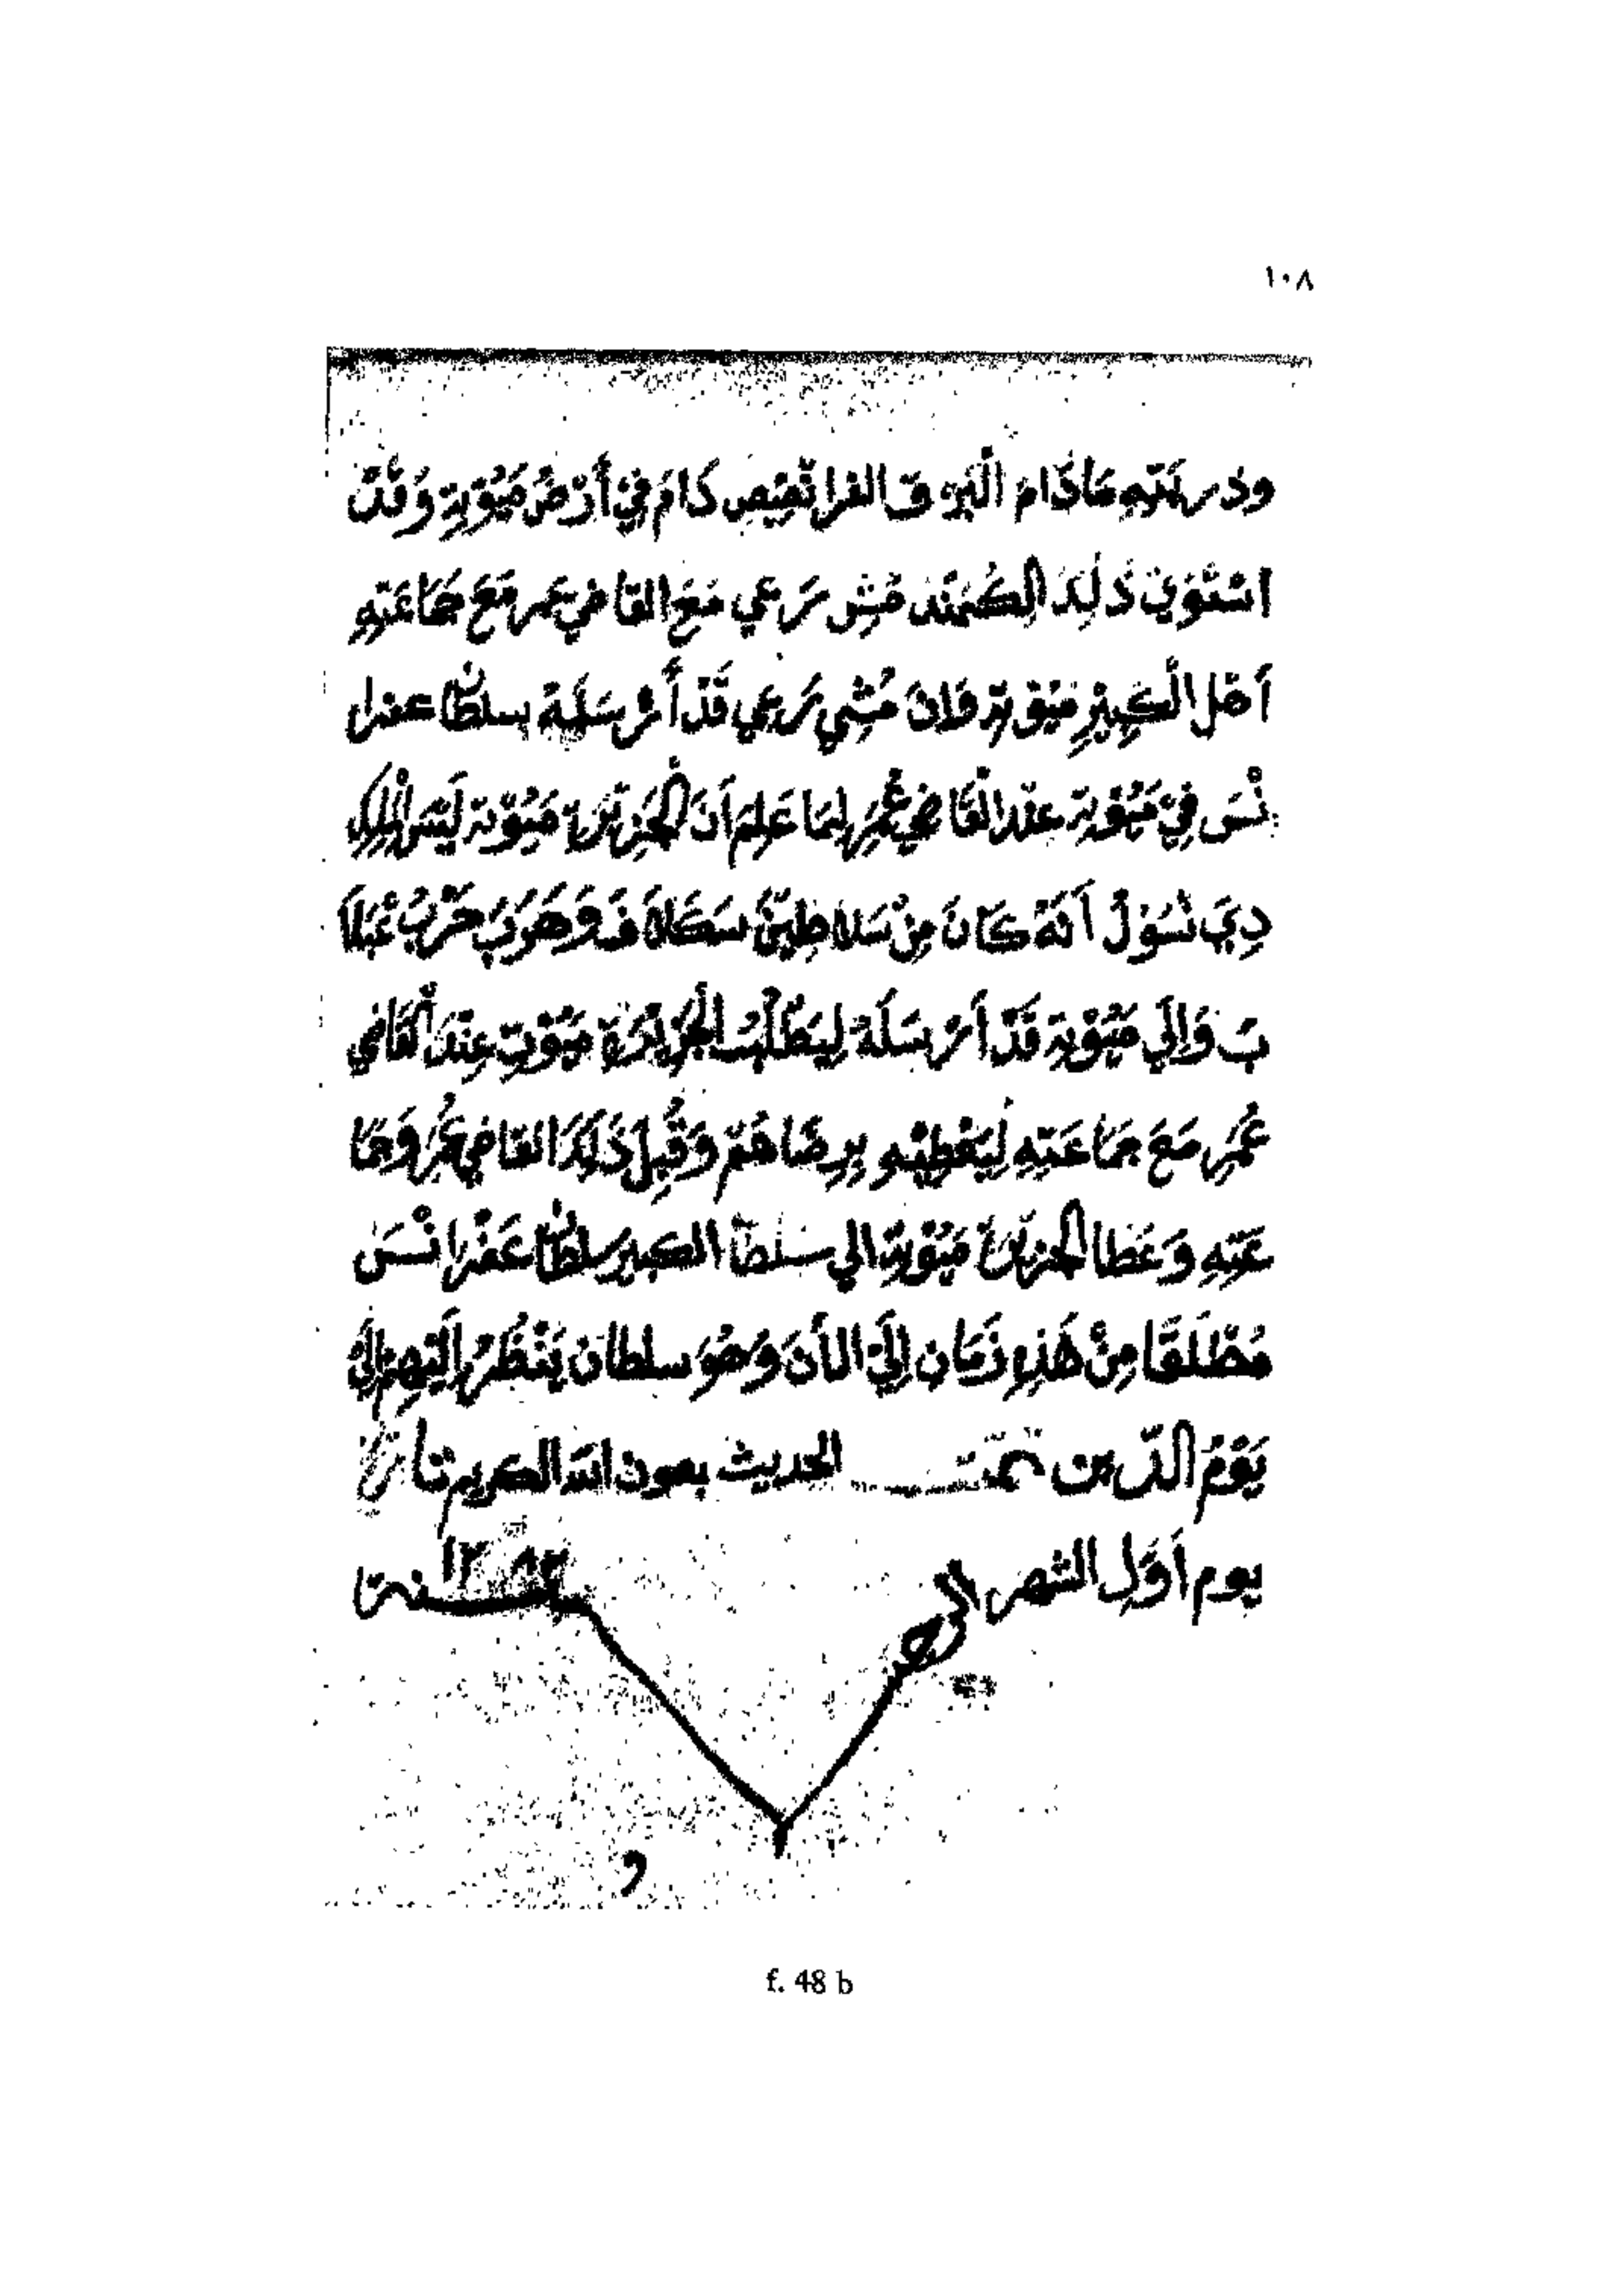 ١٠٨
وذريته مادام البروق الفرائصيص كام في أرض ميوتة وقد
استوي ذلك الكمند مش رعي مع القاضي عمر مع جماعته
أهل الكبير ميوتة فان مشي رعي قد أرسله سلطان عفرا
نس في ميوتة عند القاضي عمر لما علم أن الجزيرة ميوتة ليس الملك
دي نسول أنه كان من سلاطين سكلاف وهرب حرب غبلا
ب والي ميوتة قد أرسله ليطلب الجزيرة ميوت عند القاضي
عمر مع جماعته ليعطيه برضاهم وقبل ذلك القاضي عمر وجما
عته وعطا الجزيرة ميوتة الي سلطان الكبير سلطان عفرانس
مطلقا من هذه زمان إلي الأن وهو سلطان ينظر إليهم إلي
يوم الدين تمت الحديث بعون الله الكريم تاريخ
يوم أول الشهر
سنة
و
f. 48 b